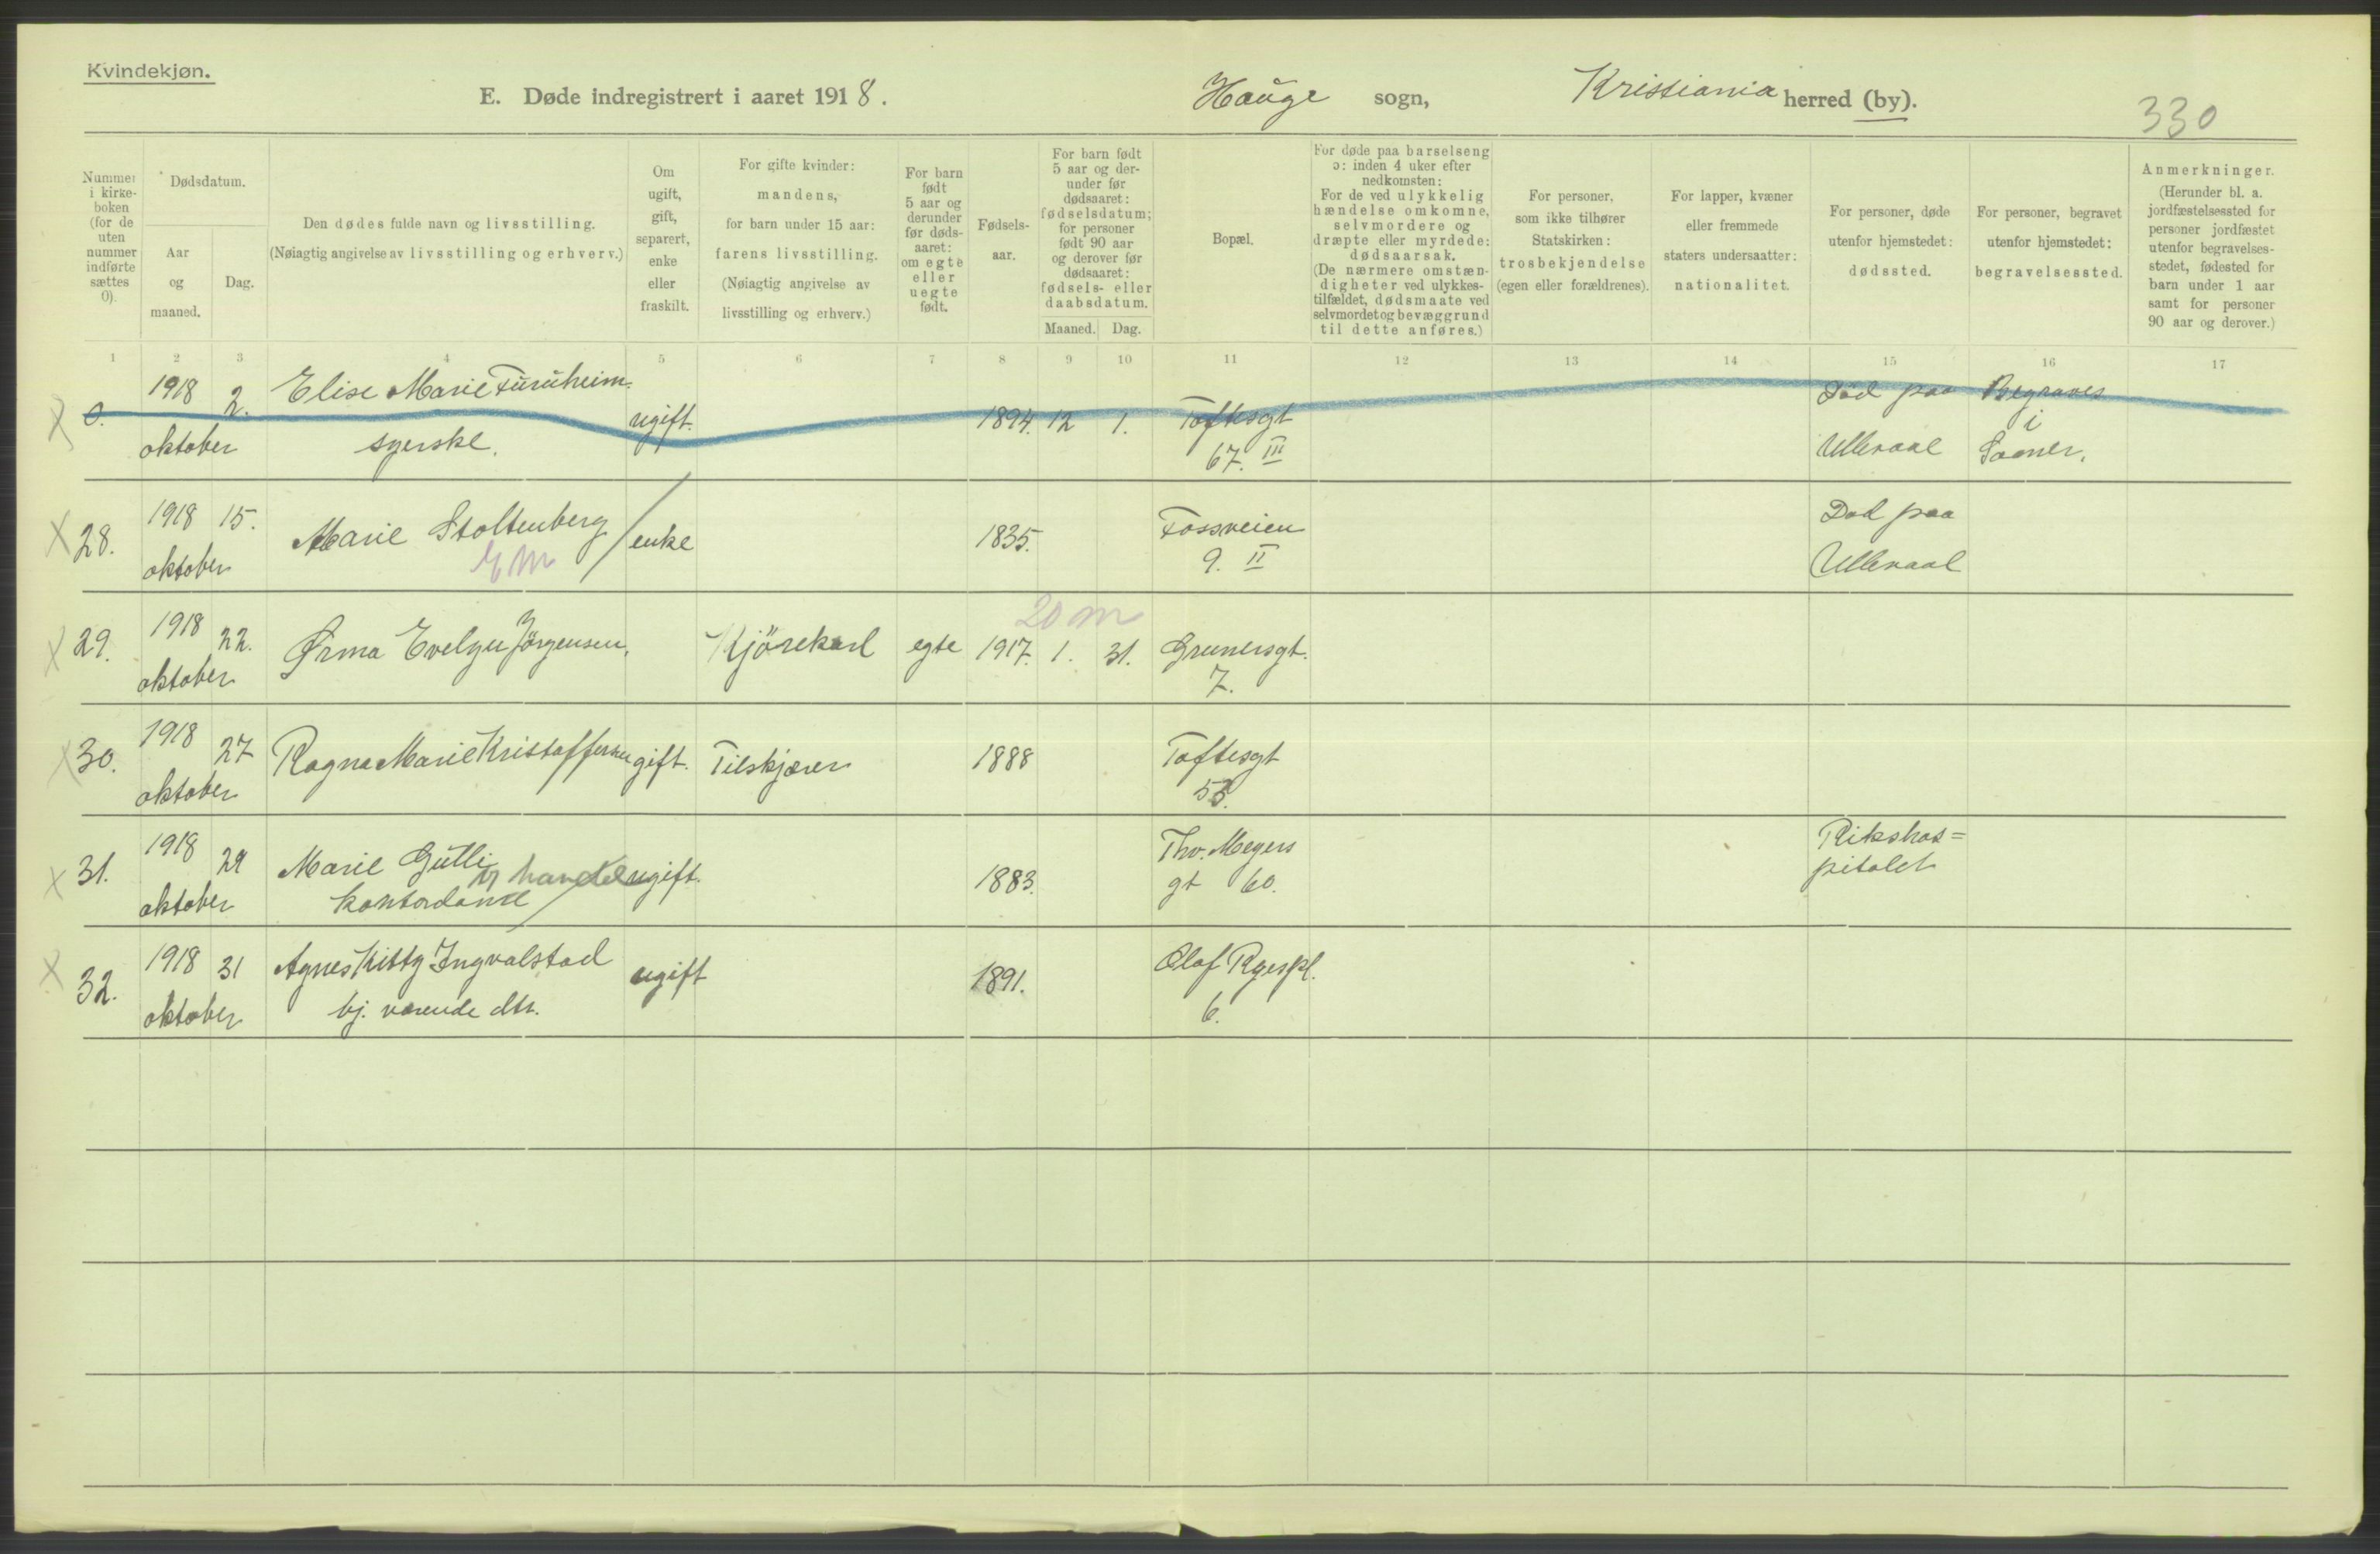 Kvindekjøn.
E. Døde indregistrert i aaret 1918. Hauge sogn, Kristiania herred (by).
330
Nummer
i kirke-
boken
(for de
uten
nummer
indførte
sættes
0).
Dødsdatum.
Aar
og
maaned.
Dag.
Den dødes fulde navn og livsstilling.
(Nøiagtig angivelse av livsstilling og erhverv.)
Om
ugift,
gift,
separert,
enke
eller
fraskilt.
For gifte kvinder:
mandens,
for barn under 15 aar:
farens livsstilling.
(Nøiagtig angivelse av
livsstilling og erhverv.)
For barn
født
5 aar og
derunder
før døds-
aaret:
om egte
eller
uegte
født.
Fødsels-
aar.
For barn født
5 aar og der-
under før
dødsaaret:
fødselsdatum;
for personer
født 90 aar
og derover før
dødsaaret:
fødsels- eller
daabsdatum.
Maaned. Dag.
Bopæl.
For døde paa barselseng
ɔ: inden 4 uker efter
nedkomsten;
For de ved ulykkelig
hændelse omkomne,
selvmordere og
dræpte eller myrdede:
dødsaarsak.
(De nærmere omstæn-
digheter ved ulykkes-
tilfældet, dødsmaate ved
selvmordet og bevæggrund
til dette anføres.)
For personer,
som ikke tilhører
Statskirken:
trosbekjendelse
(egen eller forældrenes).
For lapper, kvæner
eller fremmede
staters undersaatter:
nationalitet.
For personer, døde
utenfor hjemstedet:
dødssted.
For personer, begravet
utenfor hjemstedet:
begravelsessted.
Anmerkninger.
(Herunder bl. a.
jordfæstelsessted for
personer jordfæstet
utenfor begravelses-
stedet, fødested for
barn under 1 aar
samt for personer
90 aar og derover.)
1 2 3 4 5 6 7 8 9 10 11 12 13 14 15 16 17
X 0. 1918 2. Elise Marie Furuheim. ugift. 1894. 12 1. Toftesgt Död paa Begraves
oktober syerske. 67. III Ullevaal i
X 28. 1918 15. Marie Stoltenberg enke 1835. Fossveien Död paa
oktober 9. II Ullevaal
20 m
X 29. 1918 22. Evelyn Jörgensen, Kjörekarl egte 1917. 1. 31. Grunersgt.
oktober 7.
X 30. 1918 27 Ragna Marie Kristoffersen gift. Tilskjærer 1888 Toftesgt
oktober
X 31. 1918 29 Marie Gulli ugift. 1883. Thv. Meyers Rikshos=
oktober kontordame handel gt 60. pitalet
X 32. 1918 31 Agnes Kitty Ingvalstad ugift 1891. Olaf Ryespl.
oktober hj. værende dtr. 6.